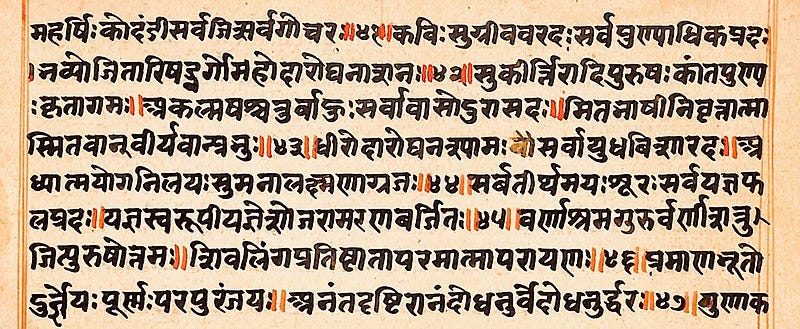 महर्षिः कोदंडी सर्वजित्सर्वगोचरः॥४१॥कविः सुग्रीववरदः सर्वपुण्याधिकप्रदः
।नव्योजितारिषड्वर्गोमहोदारोघनाशनः॥४२॥सुकीर्त्तिरादिपुरुषः कांतपुण्य
ःकृतागमः॥अकल्मषश्चतुर्बाहुः सर्वावासोदुरासदः॥मितभाषीनिवृत्तात्मा
स्मितवान्वीर्यवान्प्रभुः॥४३॥धीरोदारोघनश्यामः सर्वायुधविशारदः॥अ
ध्यात्मयोगनिलयः सुमनालक्ष्मणाग्रजः॥४४॥सर्वतीर्थमयः शूरः सर्वयज्ञफ
लप्रदः॥यज्ञस्वरूपीयज्ञेशोजरामरणबर्जितः॥४५॥वर्णाश्रमगुरुर्वर्णीशत्रु
जित्पुरुषोत्तमः॥शिवलिंगप्रतिष्ठातापरमात्मापरायणः॥४६॥प्रमाणभूतो
दुर्ज्ञेयः पूर्णः परपुरंजयः॥अनंतदृष्टिरानंदोधनुर्वेदोधनुर्द्धरः॥४७॥गुणाक